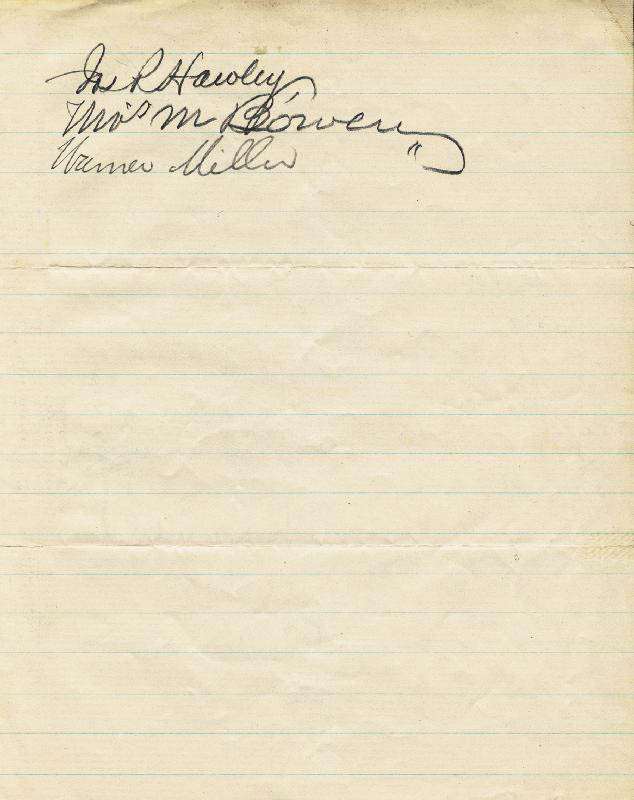 Jos R Hawley
Thos M Bowen
Warner Miller